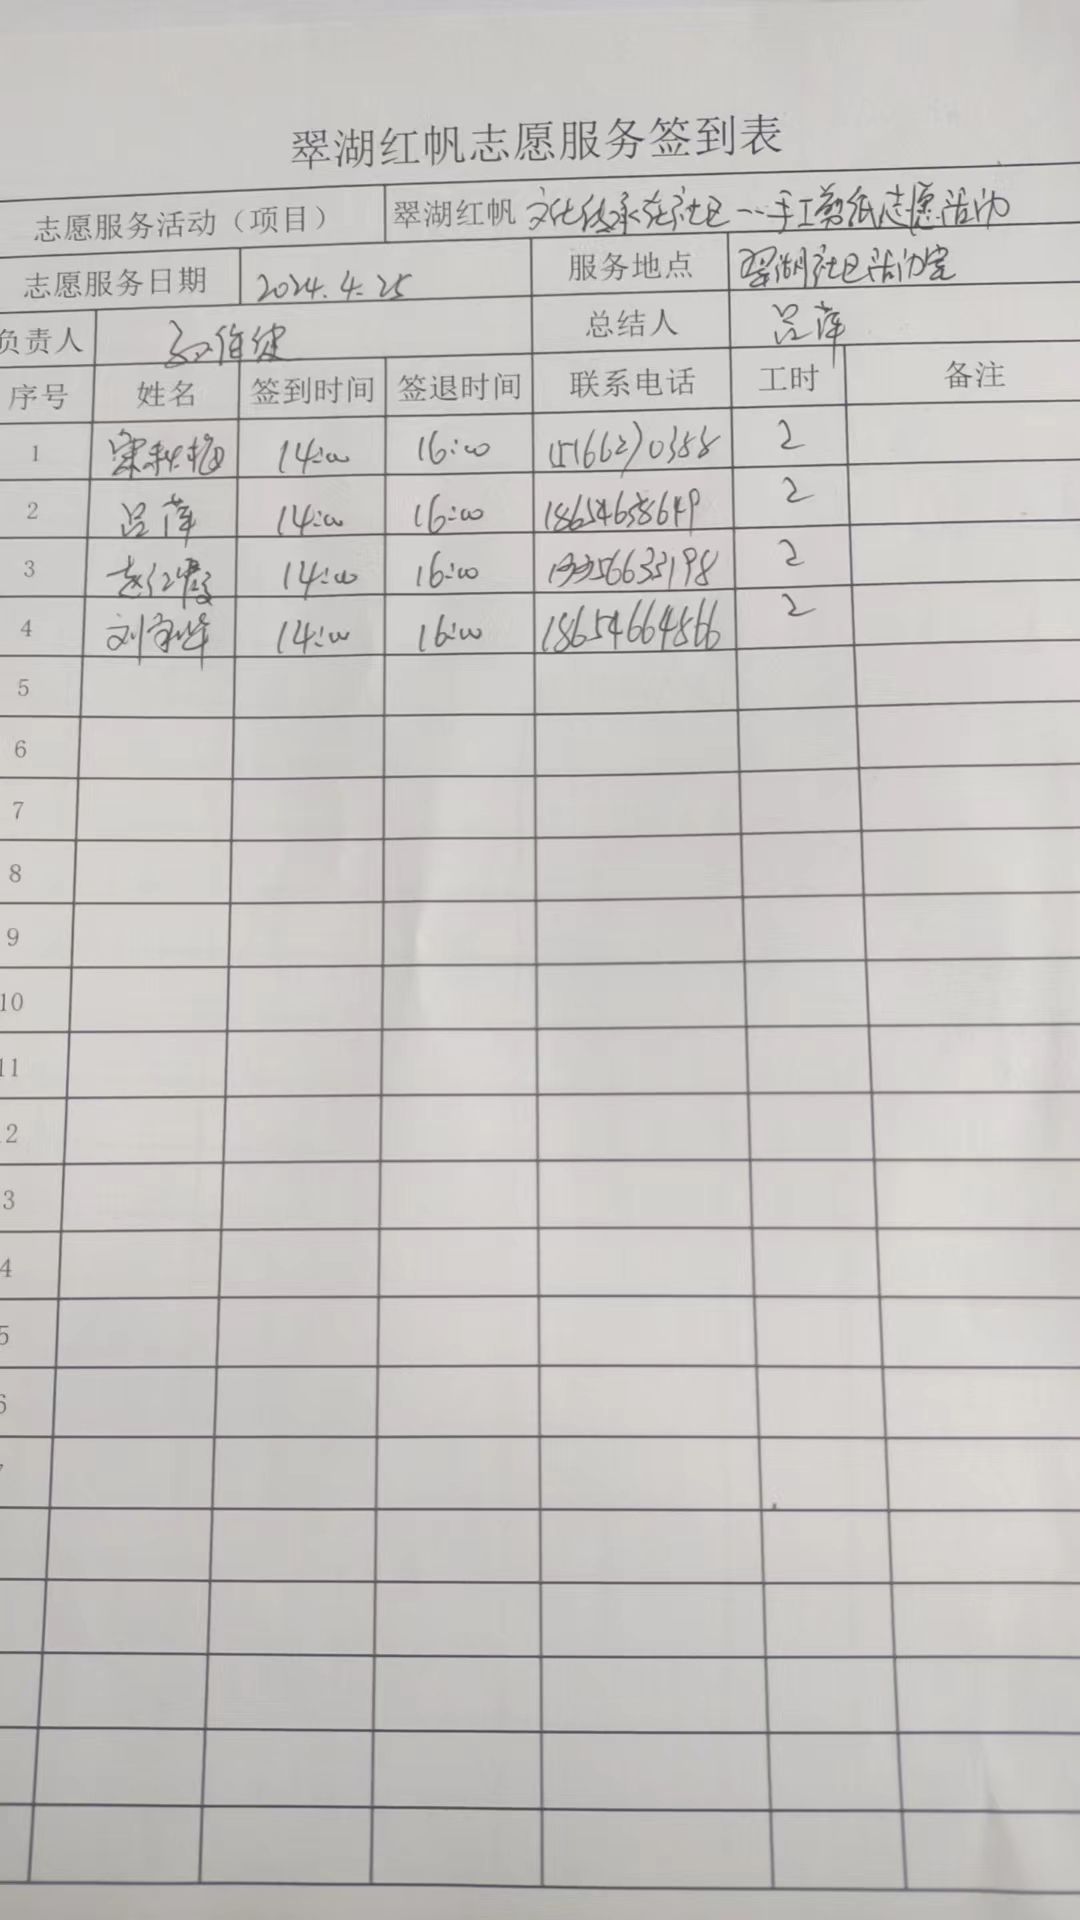 翠湖红帆志愿服务签到表
志愿服务活动（项目） 翠湖红帆 文化传承在社区——手工剪纸志愿活动
志愿服务日期 2024.4.25 服务地点 翠湖社区活动室
负责人 总结人 吕萍
序号 姓名 签到时间 签退时间 联系电话 工时 备注
1 宋秋梅 14:00 16:00 15166270388 2
2 吕萍 14:00 16:00 18654658649 2
3 赵红霞 14:00 16:00 13356633198 2
4 14:00 16:00 18654664866 2
5
6
7
8
9
10
11
2
3
4
5
6
7